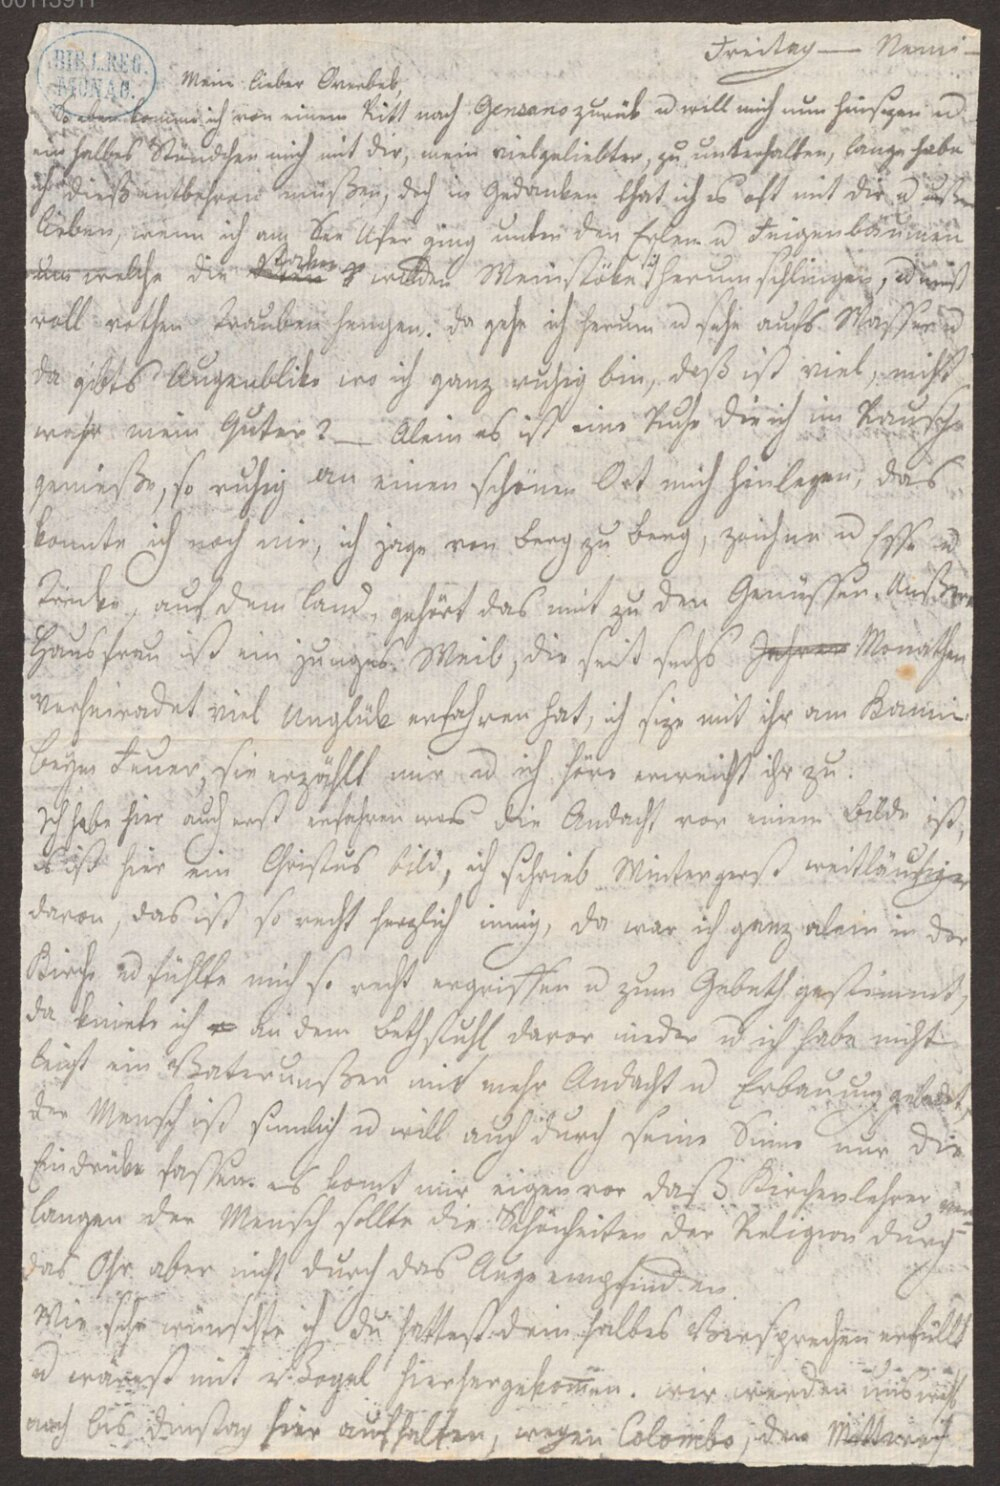 00113911
BIBL. REG.
MONAC.
Freitag — Nemi —
Mein lieber Overbek,
So eben komme ich von einem Ritt nach Gensano zurük u will mich nun hinsezen u
ein halbes Stündchen mich mit dir, mein vielgeliebter, zu unterhalten, lange habe
ich dieß entbehren müßen, doch in Gedanken that ich es oft mit dir u
lieben, wenn ich am See Ufer ging unter den Erlen u Feigenbäumen
um welche die wilden Weinstöke sich herumschlingen, u
voll rothen Trauben hengen. da gehe ich herum u sehe aufs Wasser u
da gibts Augenblike wo ich ganz ruhig bin, daß ist viel, nicht
wahr mein Guter? — Alein es ist eine Ruhe die ich im Rausche
genieße, so ruhig an einen schönen Ort mich hinlegen, das
konnte ich noch nie, ich jage von Berg zu Berg, zeichne u Esse u
Trinke, auf dem Land, gehört das mit zu den Genüssen. Unßere
Hausfrau ist ein junges Weib, die seit sechs Jahren Monathen
verheiradet viel Unglük erfahren hat, ich size mit ihr am Kamin
beym Feuer, sie erzählt mir u ich höre ihr zu.
Ich habe hier auch erst erfahren was die Andacht vor einem Bilde ist,
es ist hier ein Christus bild, ich schrieb Wintergerst weitläufiger
davon, das ist so recht herzlich innig, da war ich ganz alein in der
Kirche u fühlte mich so recht ergriffen u zum Gebeth gestimmt,
da kniete ich an dem Bethstuhl davor nieder u ich habe nicht
leicht ein Vaterunßer mit mehr Andacht u Erbauung gebetet,
der Mensch ist sinnlich u will auch durch seine Sinne nur die
Eindrüke fassen. es komt mir eigen vor daß Kirchenlehrer ver=
langen der Mensch sollte die Schönheiten der Religion durch
das Ohr aber nicht durch das Auge empfinden.
Wie sehr wünschte ich du hattest dein halbes Versprechen erfüllt
u wärest mit Vogel hierhergekommen. wir werden uns wohl
noch bis dinstag hier aufhalten, wegen Colombo, den Mittwoch